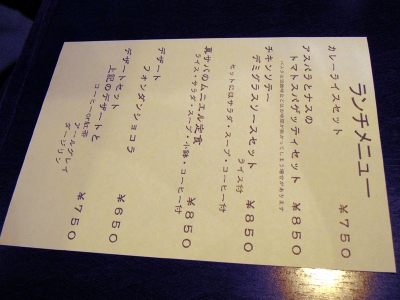 ランチメニュー
カレーライスセット ￥７５０
アスパラとナスの
トマトスパゲッティセット ￥８５０
チキンソテー
デミグラスソースセット ￥８５０
ライス付
セットにはサラダ・スープ・コーヒー付
真サバのムニエル定食 ￥８５０
ライス・サラダ・スープ・小鉢・コーヒー付
デザート
フォンダンショコラ ￥６５０
デザートセット
上記のデザートと ￥７５０
コーヒーor紅茶
アールグレイ
ダージリン